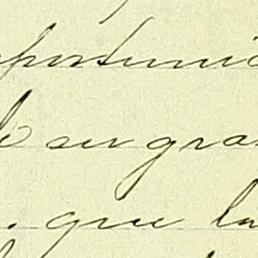 portuni
de su gra
. que la